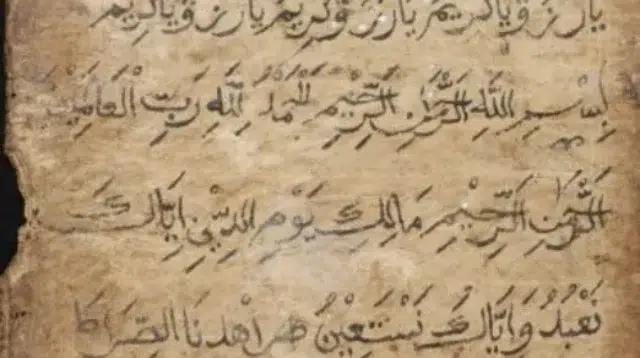 يَارَزَقُ يَاكَرِيمُ يَارَزَقُ كَرِيمُ يَارَزَقُ يَاكَرِيمُ
بِسْمِ اللَّهِ الرَّحْمٰنِ الرَّحِيْمِ الْحَمْدُ لِلَّهِ رَبِّ الْعَالَمِيْنَ
الرَّحْمٰنِ الرَّحِيْمِ مَالِكِ يَوْمِ الدِّيْنِ اِيَّاكَ
نَعْبُدُ وَاِيَّاكَ نَسْتَعِيْنُ اهْدِنَا الصِّرَاطَ